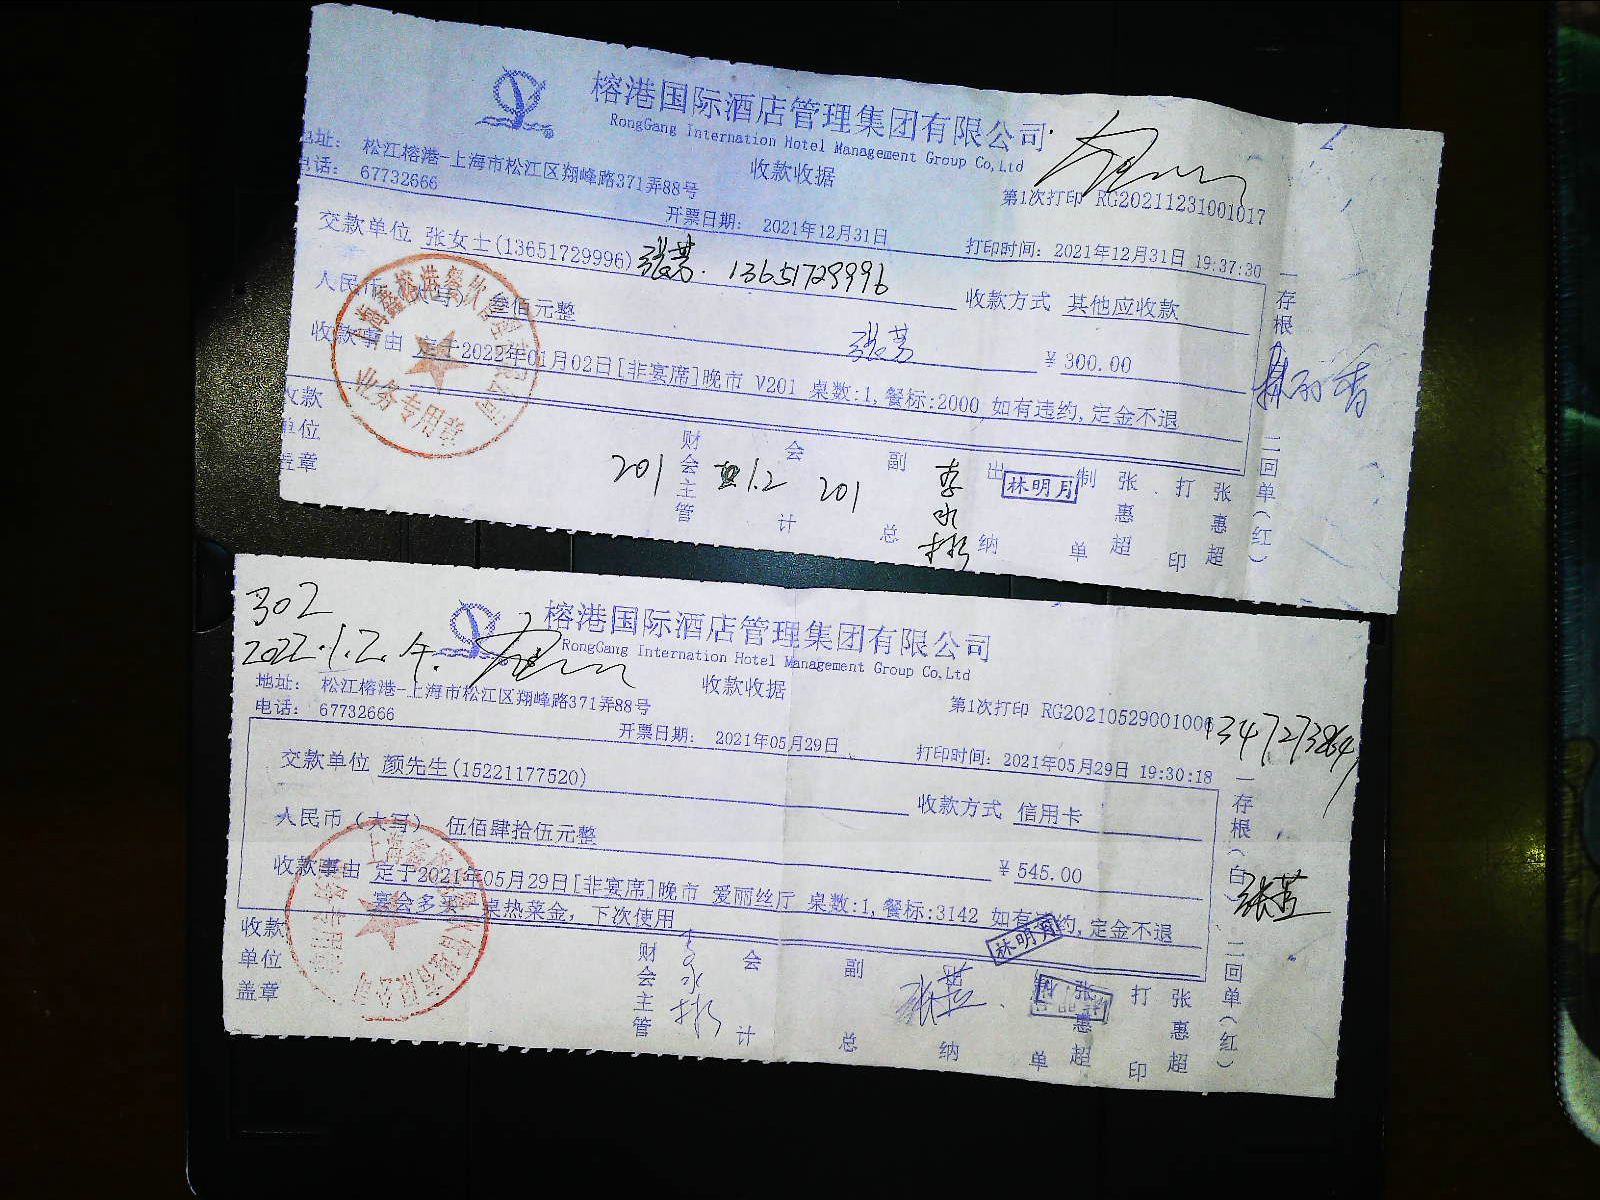 榕港国际酒店管理集团有限公司
RongGang International Hotel Management Group Co,Ltd
地址: 松江榕港-上海市松江区翔峰路371弄88号
收款收据
电话: 67732666
第1次打印 RG20211231001017
开票日期: 2021年12月31日
打印时间: 2021年12月31日 19:37:30
交款单位 张女士(13651729996) 张芸. 13651729996
收款方式 其他应收款
人民币 叁佰元整
张芸
¥300.00
收款事由 定于2022年01月02日[非宴席]晚市 V201 桌数:1,餐标:2000 如有违约,定金不退
业务专用章
收款单位盖章
财会主管
201 1.2 201
会计
副总
李水彬
出纳
林明月
制单 张惠超
打印 张惠超
一存根
二回单(红)
302
2022.1.2.午.
榕港国际酒店管理集团有限公司
RongGang International Hotel Management Group Co,Ltd
地址: 松江榕港-上海市松江区翔峰路371弄88号
收款收据
电话: 67732666
第1次打印 RG20210529001006
开票日期: 2021年05月29日
打印时间: 2021年05月29日 19:30:18
交款单位 颜先生(15221177520)
收款方式 信用卡
人民币(大写) 伍佰肆拾伍元整
¥545.00
收款事由 定于2021年05月29日[非宴席]晚市 爱丽丝厅 桌数:1,餐标:3142 如有违约,定金不退
宴会多买一桌热菜金, 下次使用
收款单位盖章
财会主管
李水彬
会计
副总
张芸.
纳
林明月
制单 张惠超
打印 张惠超
一存根(白)
张芸
二回单(红)